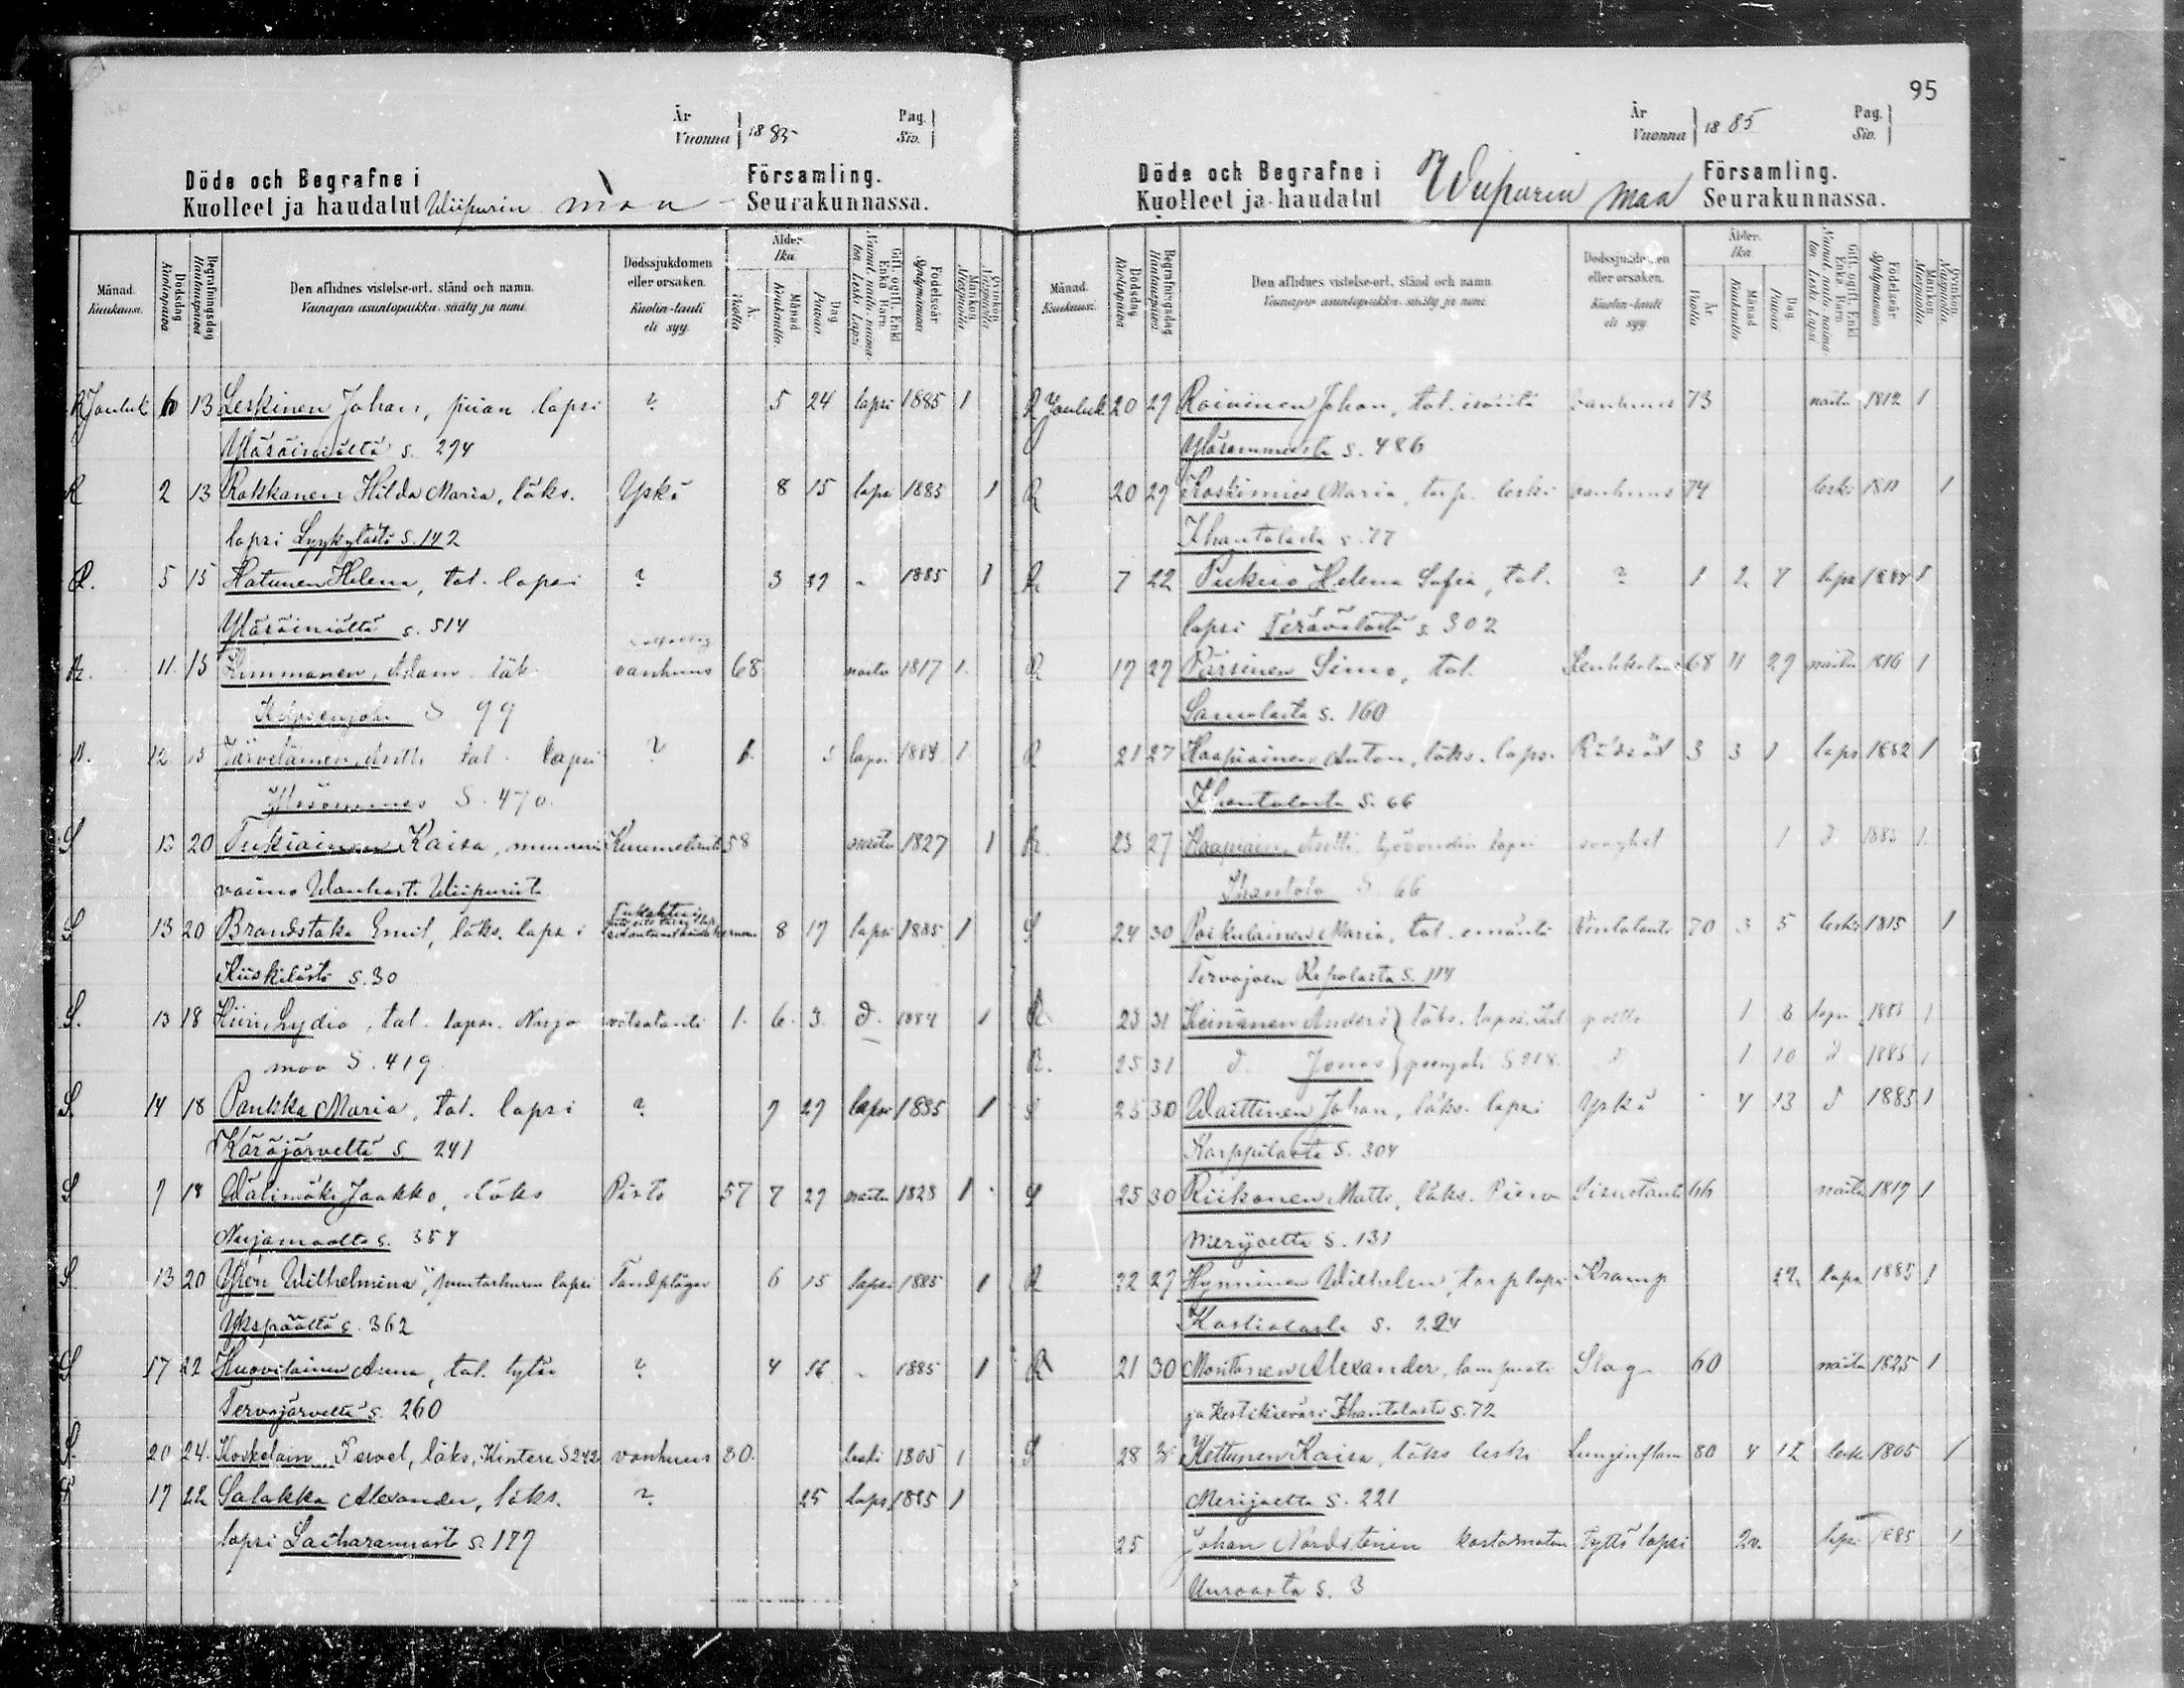 95
År
Vuonna 1885
Pag.
Siv.
Döde och Begrafne i
Församling.
Kuolleet ja haudatut Wiipurin maa Seurakunnassa.
Månad. Kuukausi.
Dödsdag Kuolinpäivä
Begrafningsdag Hautauspäivä
Den aflidnes vistelse-ort, stånd och namn.
Vainajan asuntopaikka, sääty ja nimi.
Dödssjukdomen eller orsaken.
Kuolin-tauti eli syy.
Ålder. Ikä.
År. Vuotta
Månad Kuukautta.
Dag Päivää.
Födelseår Syntymävuosi
Mankön Miespuolia
Qvinkön Naispuolia
R Jouluk 6 13 Leskinen Johan, piian lapsi ? 5 24 lapsi 1885 1
Yläsäiniältä s. 274
R 2 13 Rakkanen Hilda Maria, läks. Yskä 8 15 lapsi 1885 1
lapsi Lyykylästä s. 142
R. 5 15 Hatunen Helena, tal. lapsi ? 3 - 1885 1
Yläsäiniältä s. 514
R. 11. 13 Adam läk. vanhuus 68 naitu 1817 1.
S 99
R. 12 13 Antti tal. lapsi ? 1. lapsi 1884 1.
Yläsommee S. 470.
S 12 20 Tukiainen Kaisa, muurarin Kuumetauti 58 naitu 1827 1
vaimo Wanhasta Wiipurista
S 13 20 Brandstaka Emil, läks. lapsi 8 17 lapsi 1885 1
Kiiskilästä s. 30
S. 13 18 Kiiri, Lydia, tal. lapsi. Nuija vatsatauti 1. 6. 3. d. 1884 1
maa S. 419
S 14 18 Paukka Maria, tal. lapsi ? 7 27 lapsi 1885 1
Käräjärveltä s. 241
S 7 18 Wälimäki Jaakko, läks Pisto 57 7 27 naitu 1828 1
Nuijamaalta s. 354
S 13 20 Ylen Wilhelmina, puutarhurin lapsi Tandplågor 6 15 lapsi 1885 1
Ykspäältä s. 362
S 17 22 Huovilainen Anna, tal. tytär ? 4 16 - 1885 1
Tervajärveltä s. 260
S. 20 24. Koskelain läks, Kintere S 242 vanhuus 80. leski 1805 1
17 22 Salakka Alexander, läks. ? 25 lapsi 1885 1
lapsi Laiharannasta s. 177
År
Vuonna 1885
Pag.
Siv.
Döde och Begrafne i
Församling.
Kuolleet ja haudatut Wiipurin maa Seurakunnassa.
Månad. Kuukausi.
Dödsdag Kuolinpäivä
Begrafningsdag Hautauspäivä
Den aflidnes vistelse-ort, stånd och namn.
Vainajan asuntopaikka, sääty ja nimi.
Dödssjukdomen eller orsaken.
Kuolin-tauti eli syy.
Ålder. Ikä.
År Vuotta
Månad Kuukautta
Dag Päivää
Födelseår Syntymävuosi
Mankön Miespuolia
Qvinkön Naispuolia
R Jouluk 20 27 Roininen Johan, tal. isäntä vanhuus 73 naitu 1812 1
Yläsommeelta s. 486
R 20 27 Koskimies Maria, torp. leski vanhuus 74 leski 1811 1
Ihantalasta s. 77
R 7 22 Pukuio Helena Sofia, tal. ? 1 2 7 lapsi 1884 1
lapsi Terävälästä s. 302
R 17 27 Pärsinen Simo, tal. 68 11 27 naitu 1816 1
Samolasta s. 160
R 21 27 Haapiainen Anton, läks. lapsi 3 3 1 lapsi 1882 1
Ihantalasta s. 66
R. 23 27 Haapiain. Antti työvoudin lapsi svaghet 1 d. 1885 1.
Ihantala S. 66
S 24 30 Poikulainen Maria, tal. emäntä Rintatauti 70 3 5 leski 1815 1
Tervajoen Repolasta s. 114
R. 23 31 Keinänen Anders läks. lapsi. 1 8 lapsi 1885 1
R. 25 31 d. Jonas S 218. d 1 10 d 1885 1
S 25 30 Waittinen Johan, läks. lapsi Yskä 4 13 d 1885 1
Karppilasta s. 304
S 25 30 Riikonen Matts, läks. Piero 66 naitu 1819 1
merijoelta s. 131
R 22 27 Hynninen Wilhelm, torp lapsi Kramp 22 lapsi 1885 1
Kostialasta s.
R 21 30 Montonen Alexander, lampuoti Slag 60 naitu 1825 1
ja kestikievari Ihantalasta s. 72
S 28 31 Kettunen Kaisa, läks leski Lunginflam 80 4 12 leski 1805 1
Merijoelta s. 221
25 Johan Nordstenin kastamaton tyttö lapsi lapsi 1885 1
Uuraasta s. 3